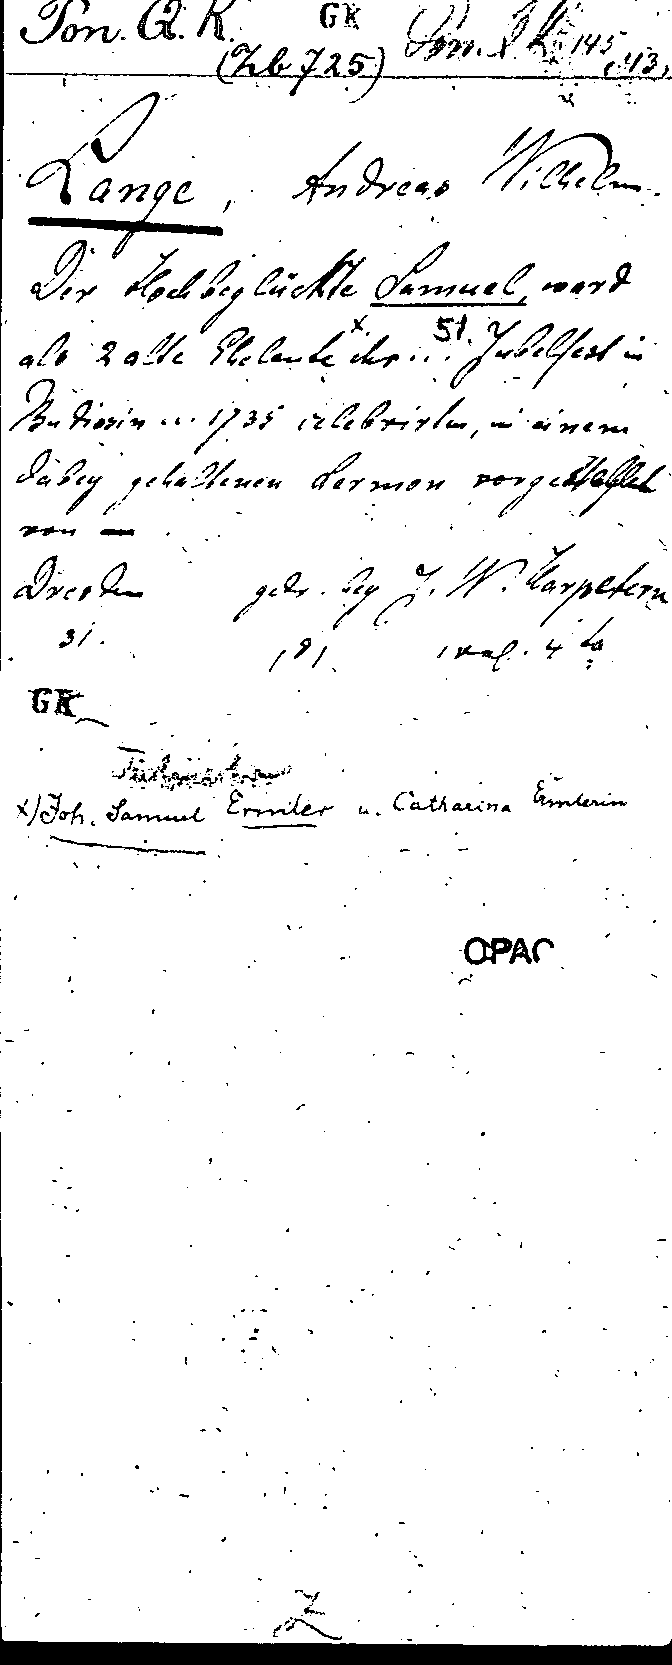 Pon. Q. K. GK
(Zb 725) Pon. 145, 43,
Lange, Andreas Wilhelm.
Der Hochbeglückte Samuel, ward
als 2 alte Eheleute x ihr ... 51. Jubelfest in
Budissin a. 1735 celebrirten, in einem
dabey gehaltenen Sermon vorgestellet
von —
Dresden gedr. bey J. W. Harpetern
31. 4 to
GK
x) Joh. Samuel Ermler u. Catharina Ermlerin
OPAC
Z